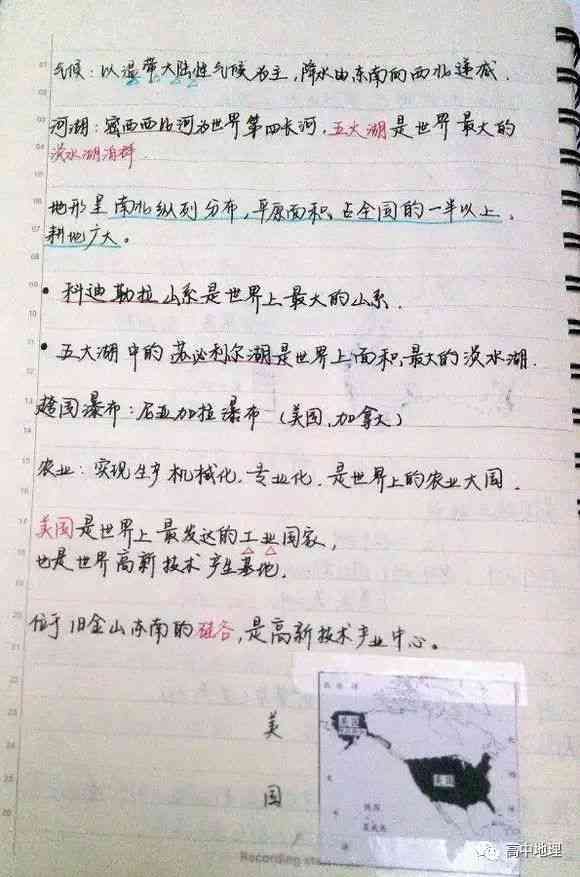 气候：以温带大陆性气候为主，降水由东南向西北递减．
河湖：密西西比河为世界第四长河，五大湖是世界最大的
淡水湖泊群．
地形呈南北纵列分布，平原面积占全国的一半以上，
耕地广大。
• 科迪勒拉山系是世界上最大的山系．
• 五大湖中的苏必利尔湖是世界上面积最大的淡水湖．
跨国瀑布：尼亚加拉瀑布（美国、加拿大）
农业：实现生产机械化、专业化．是世界上的农业大国．
美国是世界上最发达的工业国家，
也是世界高新技术产生基地．
位于旧金山东南的硅谷，是高新技术产业中心。
美
国
美国
美国
Recording
高中地理